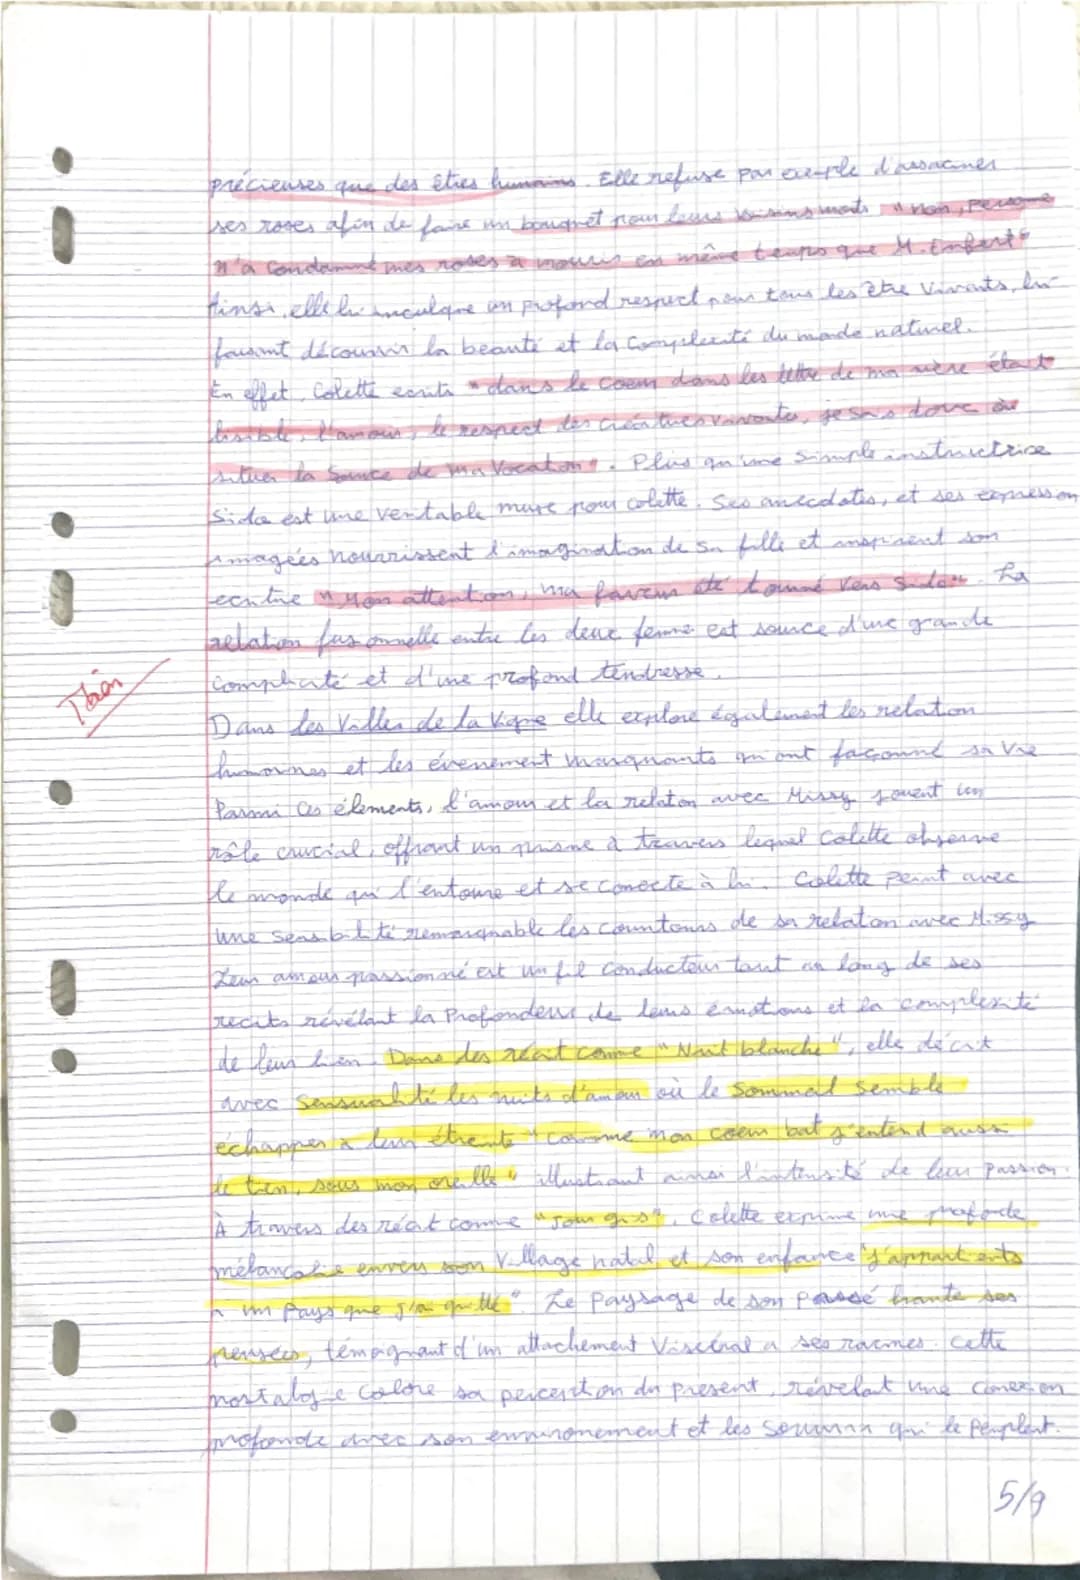 précieuses que des êtres humains. Elle refuse par exemple d'assaciner
ses roses afin de faire un bouquet pour leurs voisins morts "non, personne
n'a condamné mes roses à mourir en même temps que M. Enfert"
Ainsi, elle lui inculque un profond respect pour tous les être vivants, lui
faisant découvrir la beauté et la complexité du monde naturel.
En effet, Colette ecrits "dans le coeur dans les lettre de ma mère étaut
lisible, l'amour, le respect des créatures vivantes, je sais donc où
situer la source de ma vocation". Plus qu'une simple instructrice
Sido est une veritable muse pour colette. Ses anecdotes, et ses expression
imagées nourrissent l'imagination de sa fille et inspirent son
ecriture "Mon attention, ma ferveur été tourné vers Sido". La
relation fusionnelle entre les deux femme est source d'une grande
Complicité et d'une profond tendresse.
Thian
Dans les Vrilles de la Vigne elle explore également les relation
humaines et les évenement marquants qui ont façonné sa vie
Parmi ces élements, l'amour et la relation avec Missy jouent un
rôle crucial, offrant un prisme à travers lequel Colette observe
le monde qui l'entoure et se conecte à lui. Colette peint avec
une sensibilité remarquable les countours de sa relation avec Missy
Leur amour passionné est un fil conducteur tout au long de ses
recits révélant la Profondeur de leurs émotions et la complexité
de leur lien. Dans des récit comme "Nuit blanche", elle décrit
avec sensualité les nuits d'amour où le sommeil semble
échapper à leur étreinte "comme mon coeur bat j'entend aussi
le tien, sous mon oreille" illustrant ainsi l'intensité de leur passion.
À travers des récit comme "Jour gris", Colette exprime une profonde
mélancolie envers son Village natal et son enfance "j'appartients
à un pays que j'ai quitté". Le paysage de son passé hante ses
pensées, témoignant d'un attachement Viscéral a ses racines. Cette
nostalgie colore sa perception du présent, révélant une conexion
profonde avec son environnement et les souvenirs qui le peuplent.
5/9